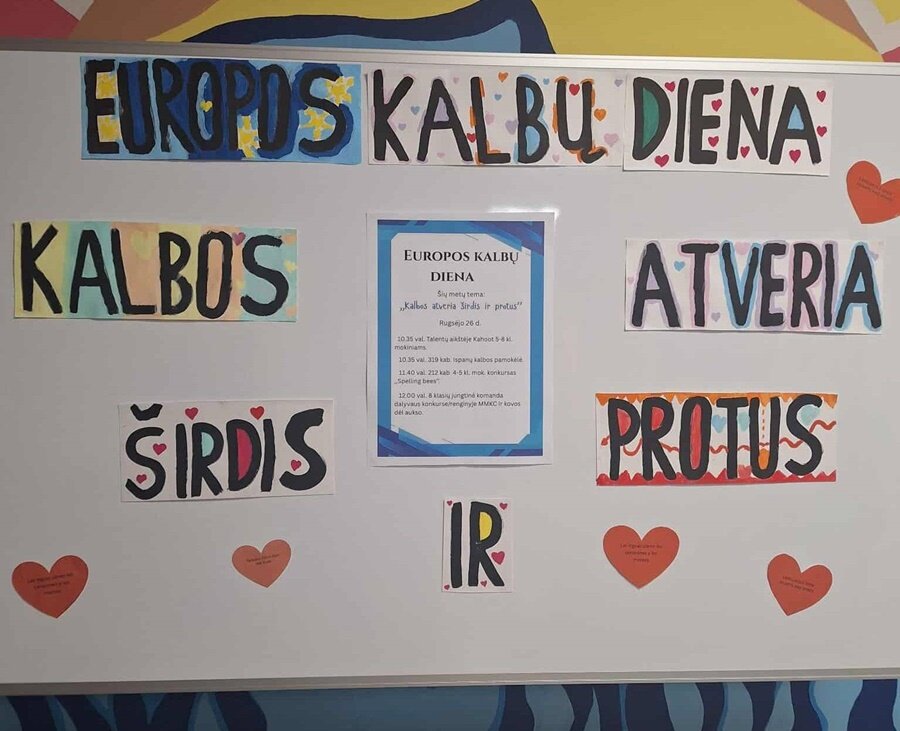 EUROPOS KALBŲ DIENA
KALBOS ATVERIA
ŠIRDIS IR PROTUS
EUROPOS KALBŲ
DIENA
Šių metų tema:
„Kalbos atveria širdis ir protus"
Rugsėjo 26 d.
10.35 val. Talentų aikštėje Kahoot 5-8 kl.
mokiniams.
10.35 val. 319 kab. Ispanų kalbos pamokėlė.
11.40 val. 212 kab. 4-5 kl. mok. konkursas
„Spelling bees".
12.00 val. 8 klasių jungtinė komanda
dalyvaus konkurse/renginyje MMKC ir kovos
dėl aukso.